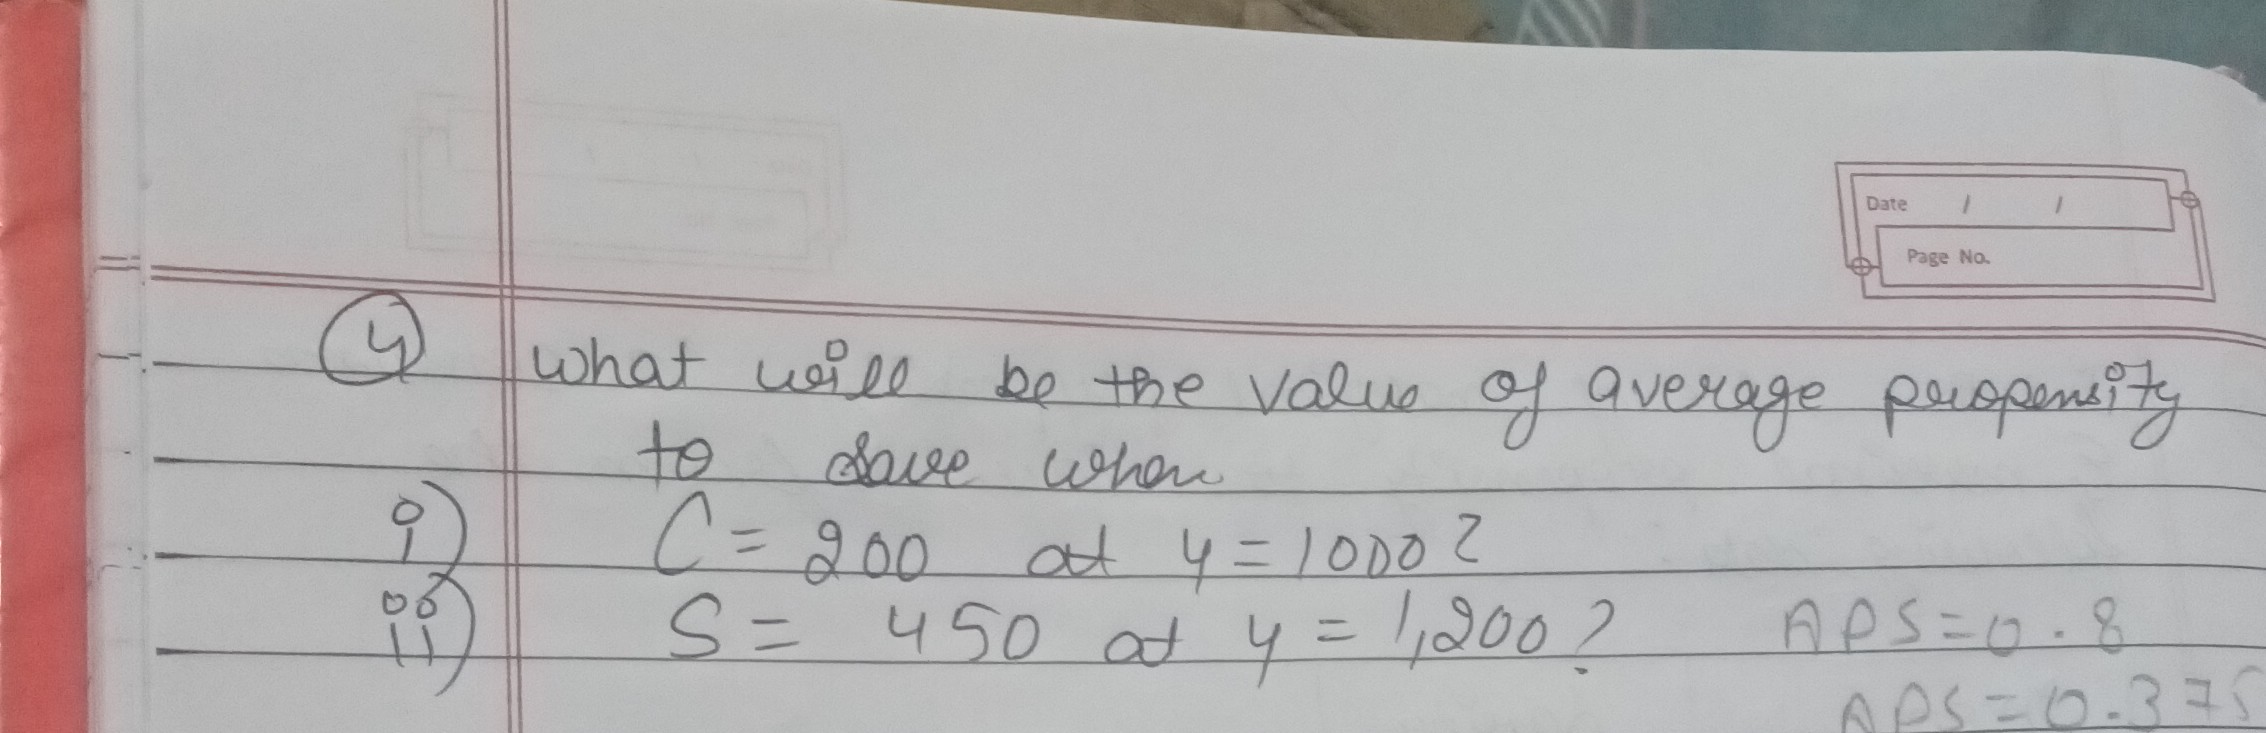 Date / /
Page No.
4 what will be the value of average propensity
to save when
i) C = 200 at y = 1000?
ii) S = 450 at y = 1,200? APS = 0.8
APS = 0.375